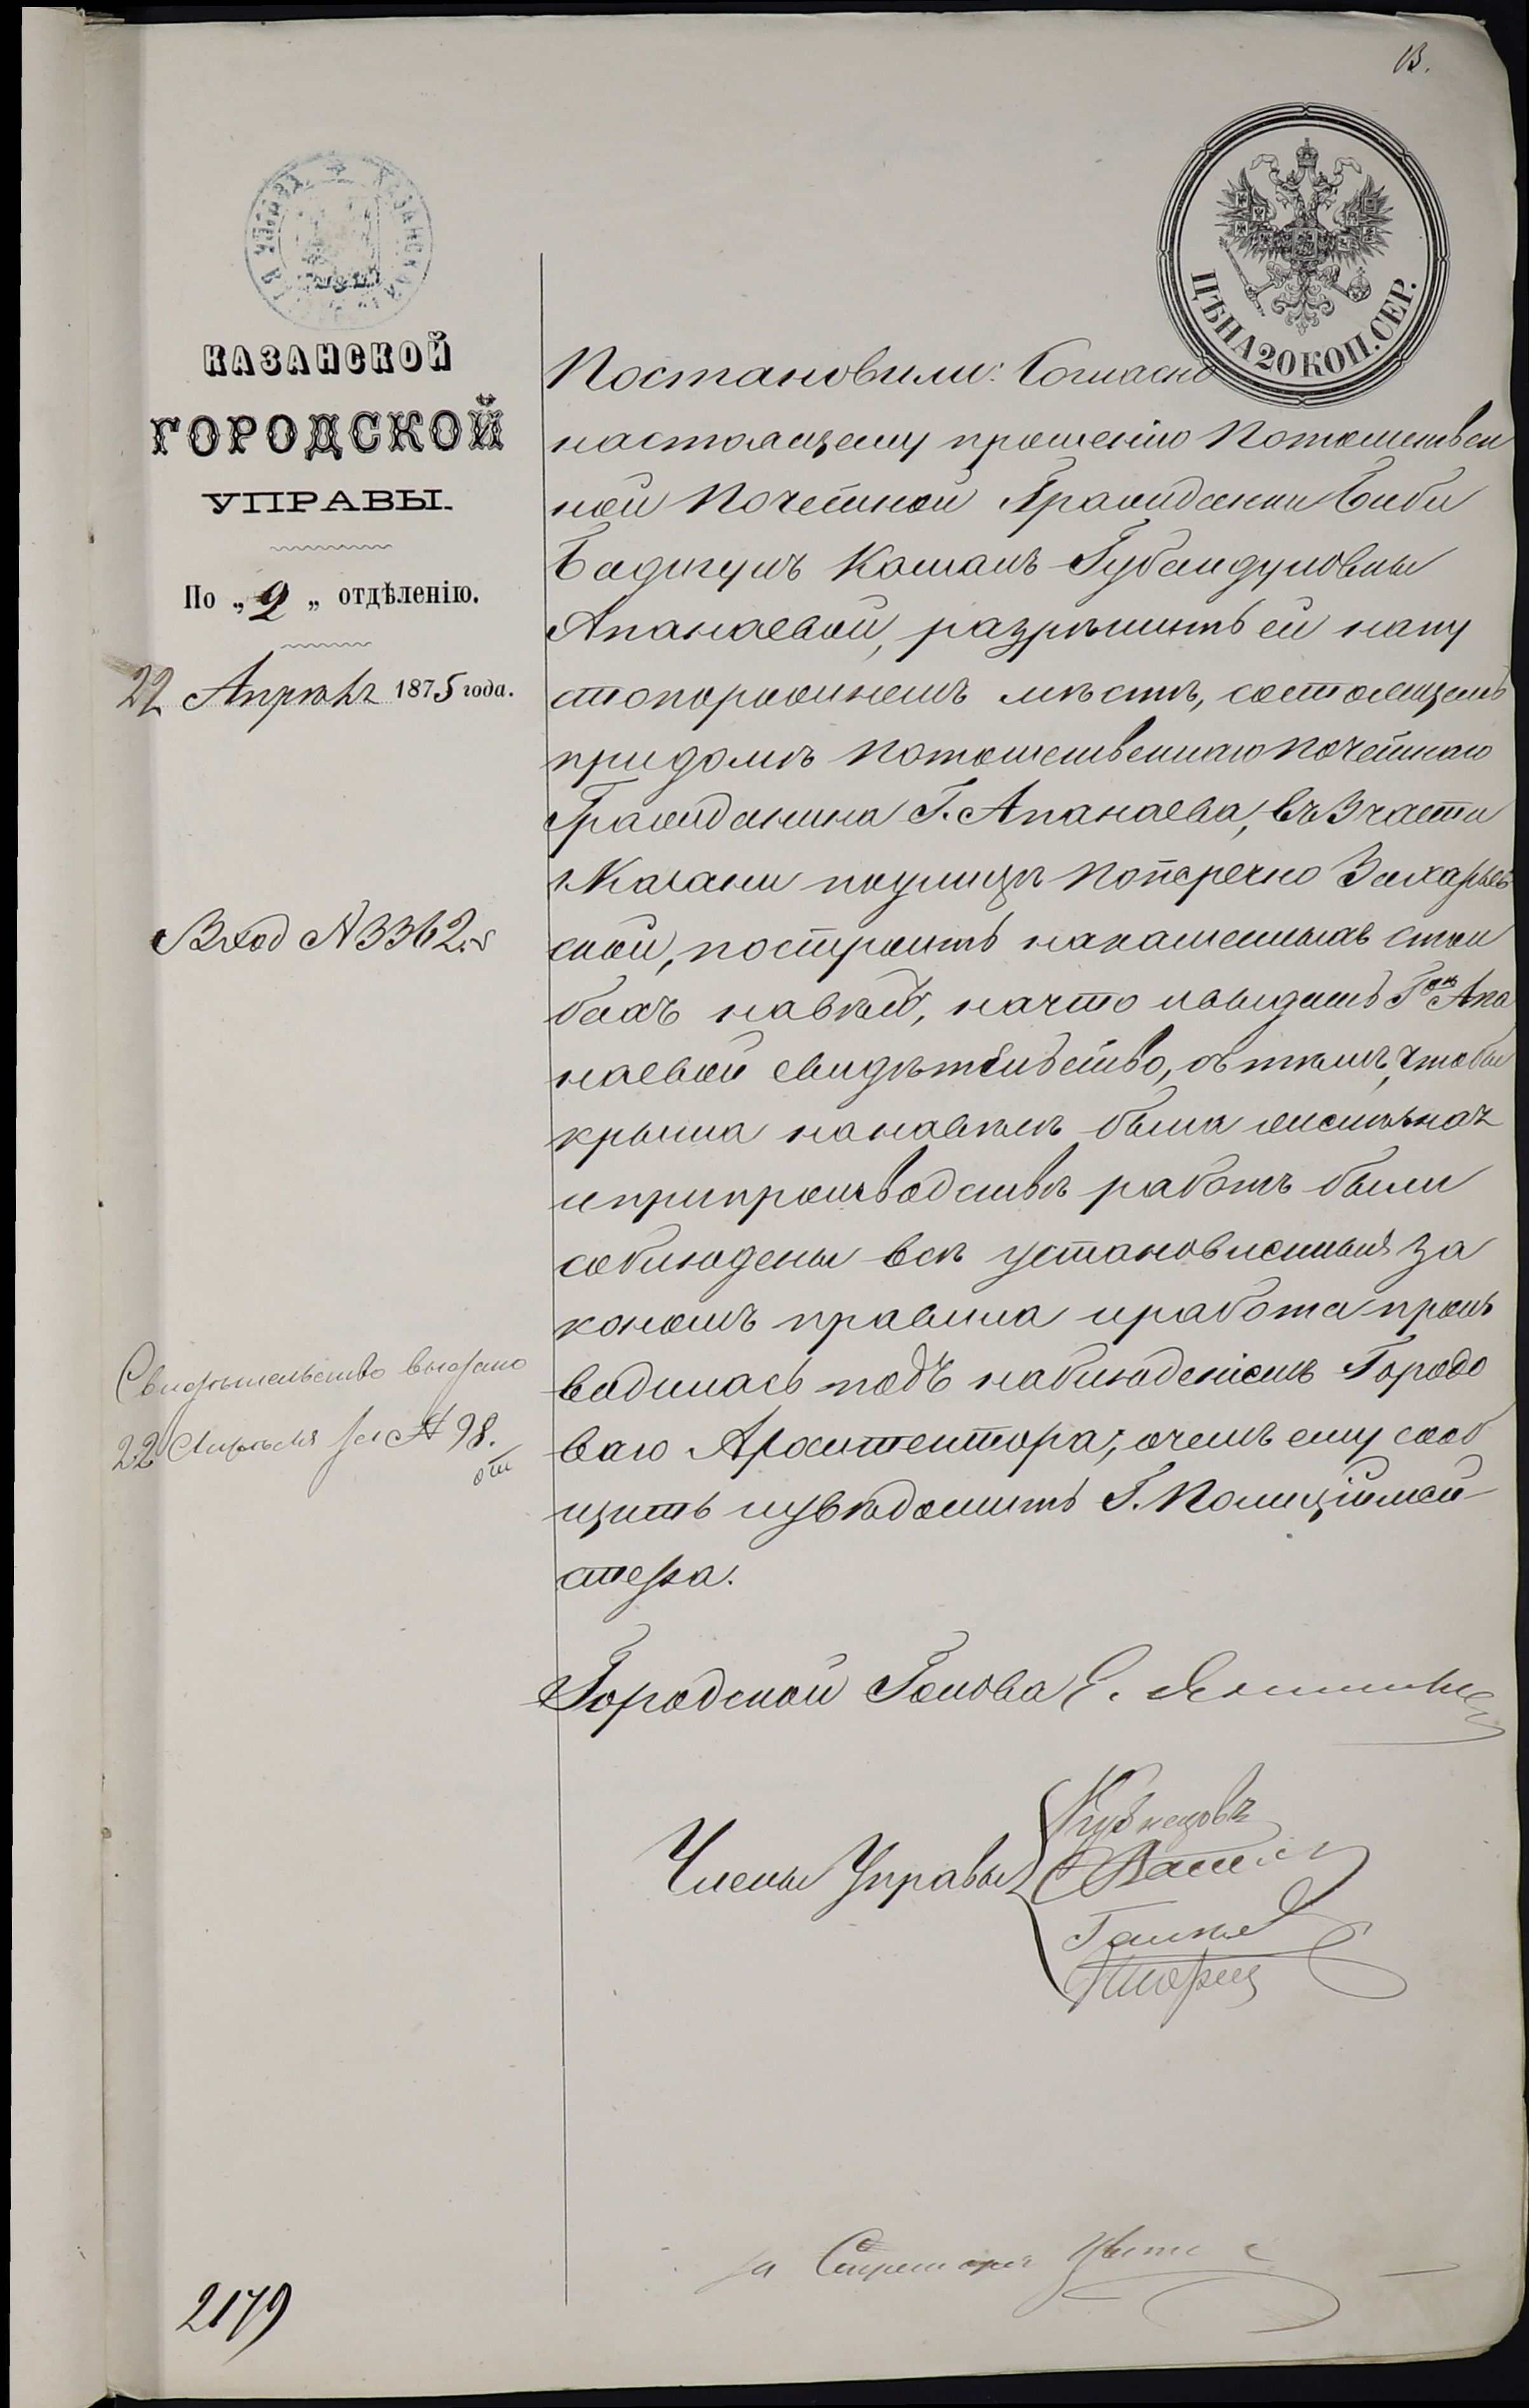 13.
ЦѢНА 20 КОП. СЕР.
КАЗАНСКОЙ
ГОРОДСКОЙ
УПРАВЫ.
По „2„ отдѣленію.
22 Апрѣля 1875 года.
Вход № 3362.
Свидѣтельство выдано
22 Апрѣля за № 98.
2179
Постановили: Согласно
настоящему прошенію Потомствен
ной Почетной Гражданки Биби
Бадигулъ Камалъ Губайдулловны
Апанаевой, разрѣшить ей на пу
стопорожнемъ мѣстѣ, состоящемъ
при домѣ Потомственнаго Почетнаго
Гражданина Г. Апанаева, въ 3 части
г. Казани по улицѣ Поперечно Захарьев
ской, построить на каменныхъ стол
бахъ навѣсъ, на что и выдать Г-жѣ Апа
наевой свидѣтельство, съ тѣмъ, чтобы
крыша на навѣсѣ была желѣзная
и при производствѣ работъ были
соблюдены всѣ установленныя за
кономъ правила и работа произ
водилась подъ наблюденіемъ Городо
ваго Архитектора; о чемъ ему сооб
щить и увѣдомить Г. Полиціймей
стера.
Городской Голова Е.
Члены Управы
Кузнецовъ
за Секретаря